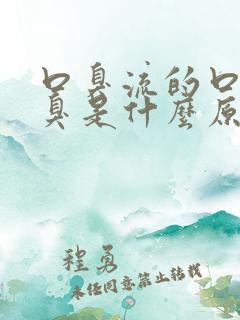 口臭流的口
臭是什麼原
程勇
未经同意禁止转载